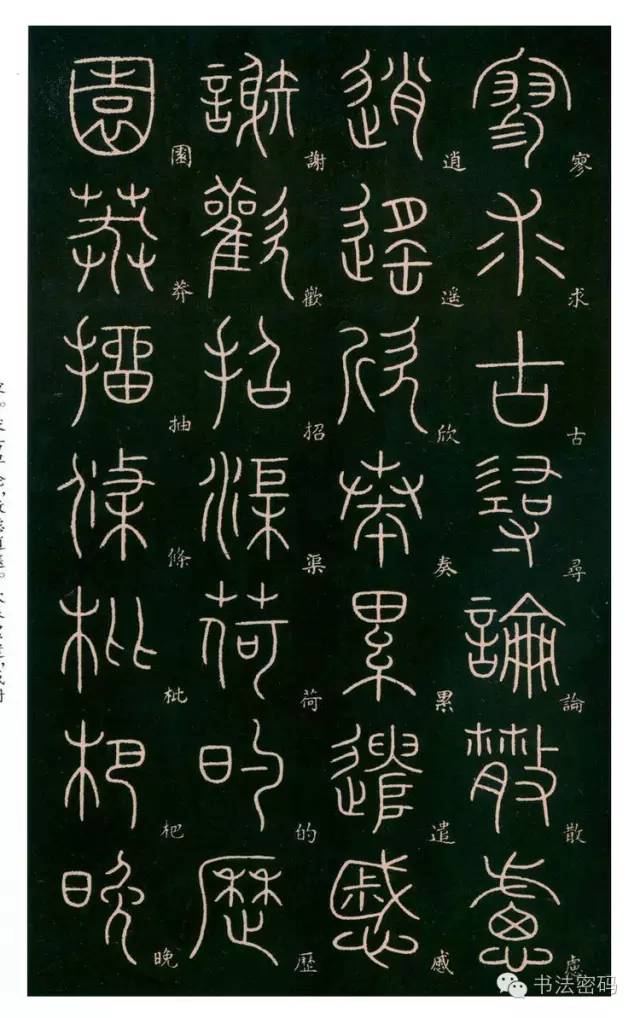 寥求古尋論散慮
逍遙欣奏累遣慼
謝歡招渠荷的歷
園莽抽條枇杷晚
书法密码